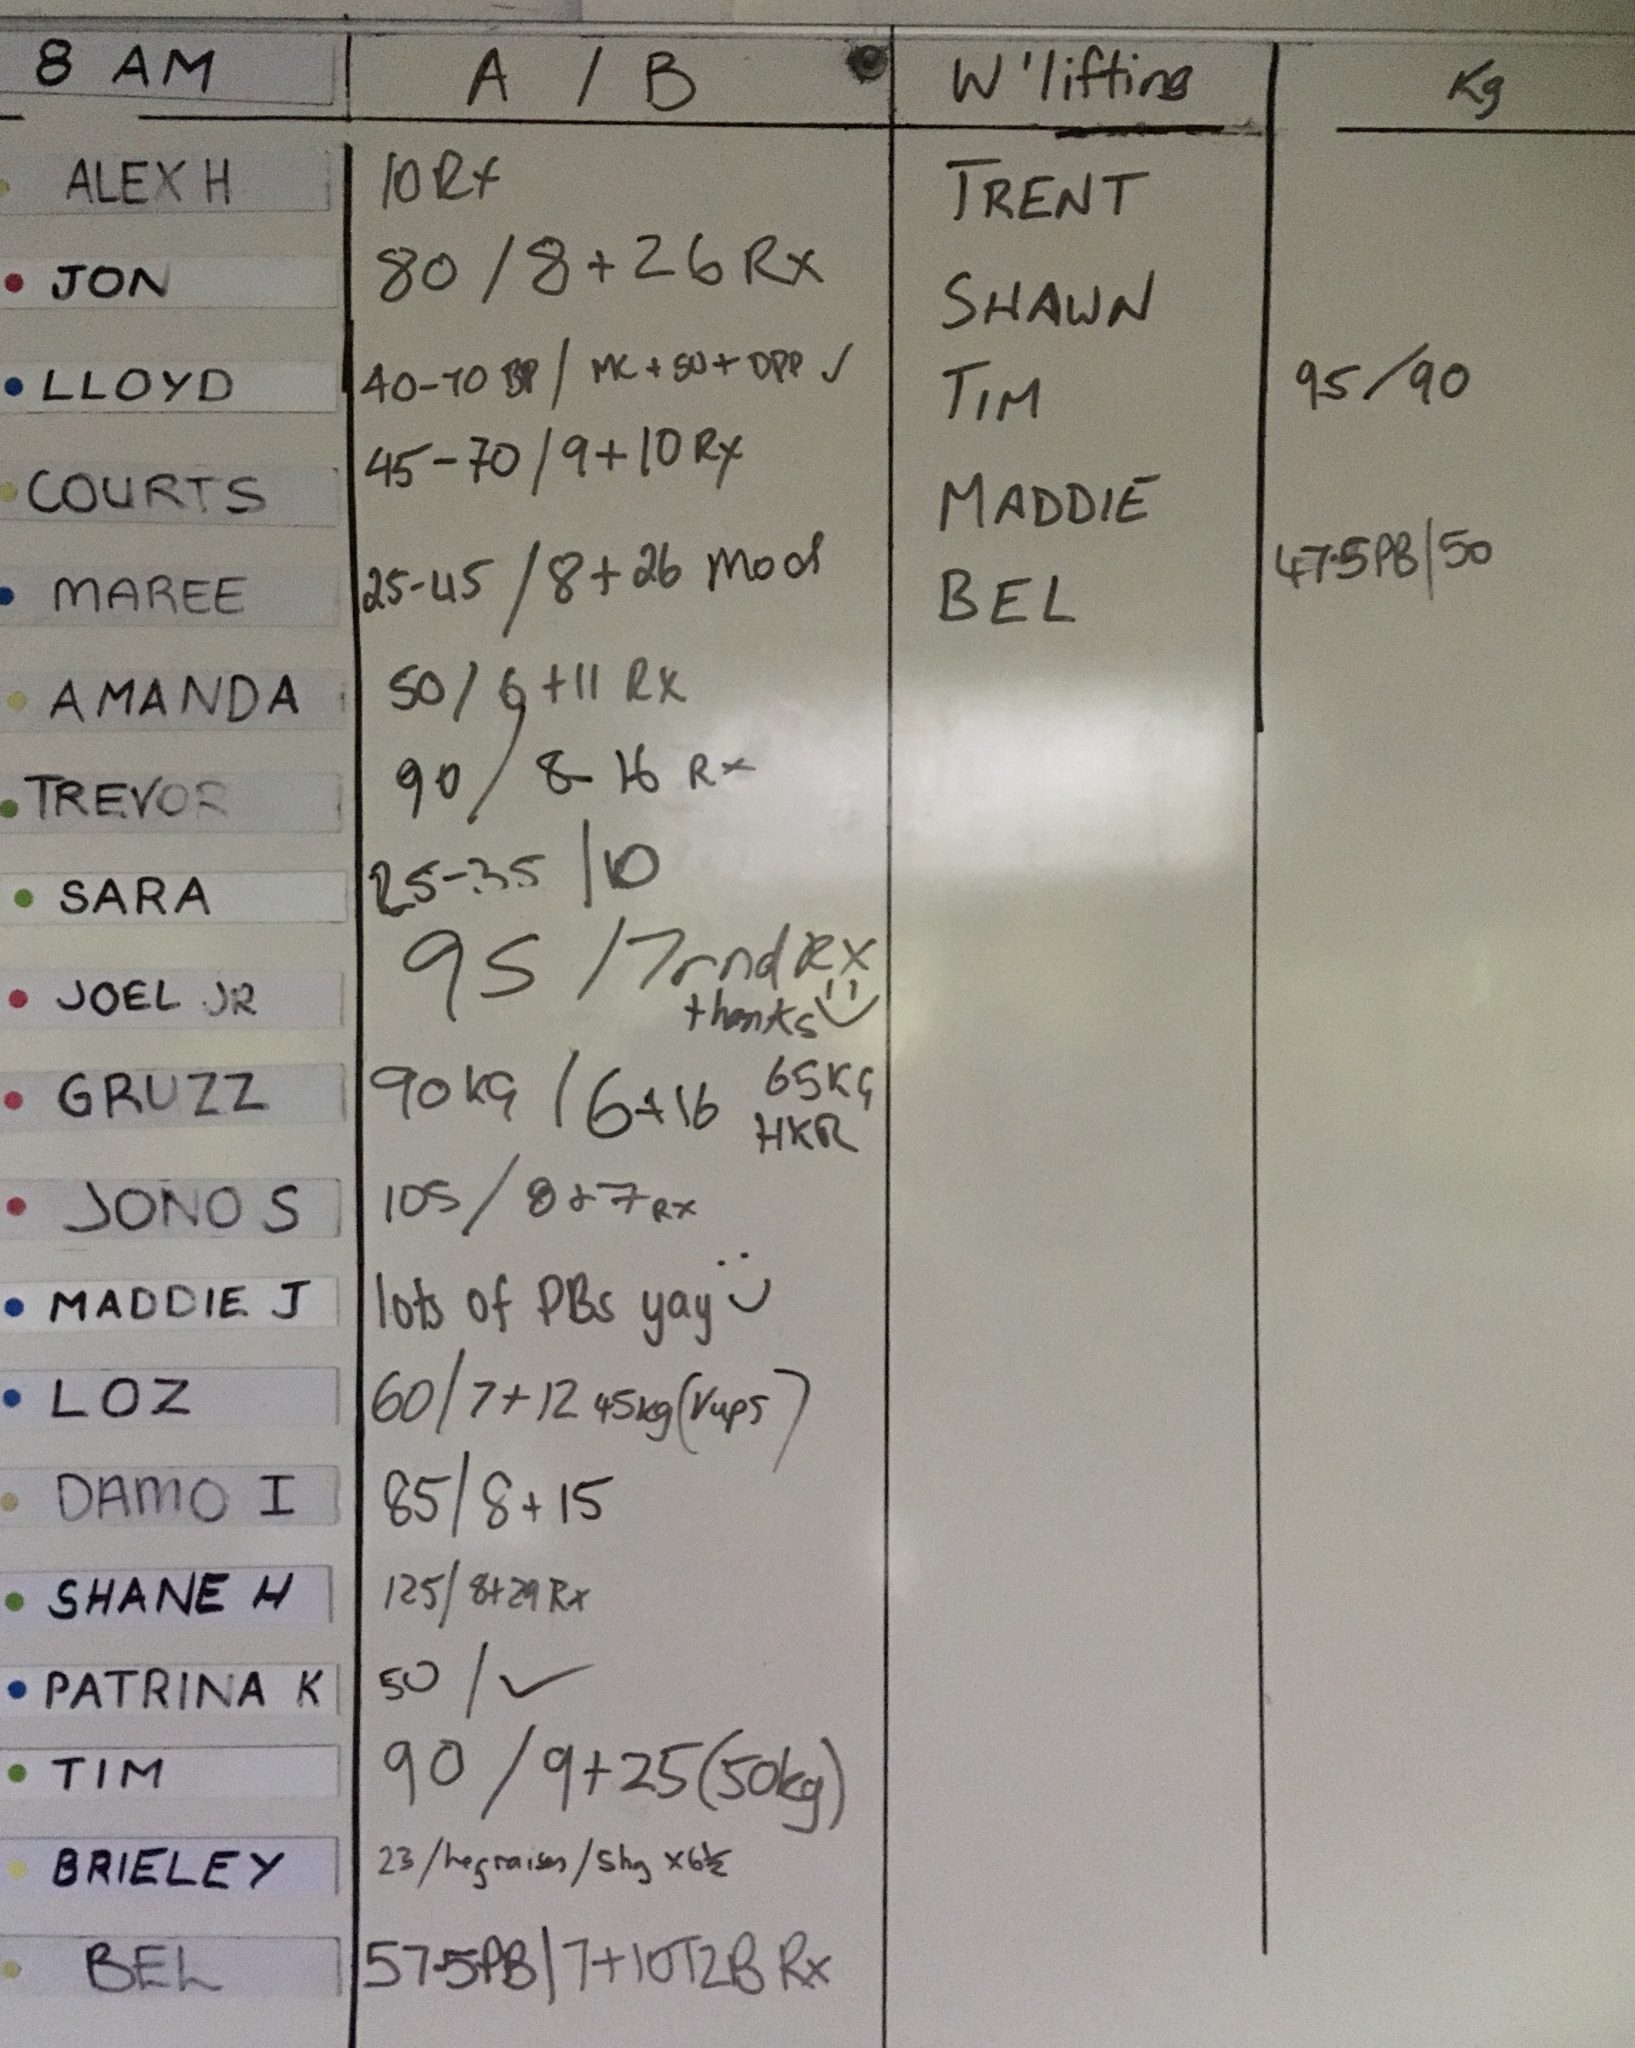 8 AM A / B W'lifting Kg
ALEX H 10 Rx TRENT
JON 80 / 8 + 26 Rx SHAWN
LLOYD 40-70 BP / MC + SU + DPP ✓ TIM 95/90
COURTS 45-70 / 9 + 10 Rx MADDIE
MAREE 25-45 / 8 + 26 mod BEL 47.5PB/50
AMANDA 50 / 6 + 11 Rx
TREVOR 90 / 8 16 Rx
SARA 25-35 / 10
JOEL JR 95 / 7 rnd RX
thanks
GRUZZ 90KG / 6 + 16 65KG
HKR
JONO S 105 / 8 + 7 RX
MADDIE J lots of PBs yay
LOZ 60 / 7 + 12 45kg (Vups)
DAMO I 85 / 8 + 15
SHANE H 125 / 8+29 Rx
PATRINA K 50 / ✓
TIM 90 / 9 + 25 (50kg)
BRIELEY 23 / legraises / 5kg x6½
BEL 57.5PB / 7 + 10T2B Rx